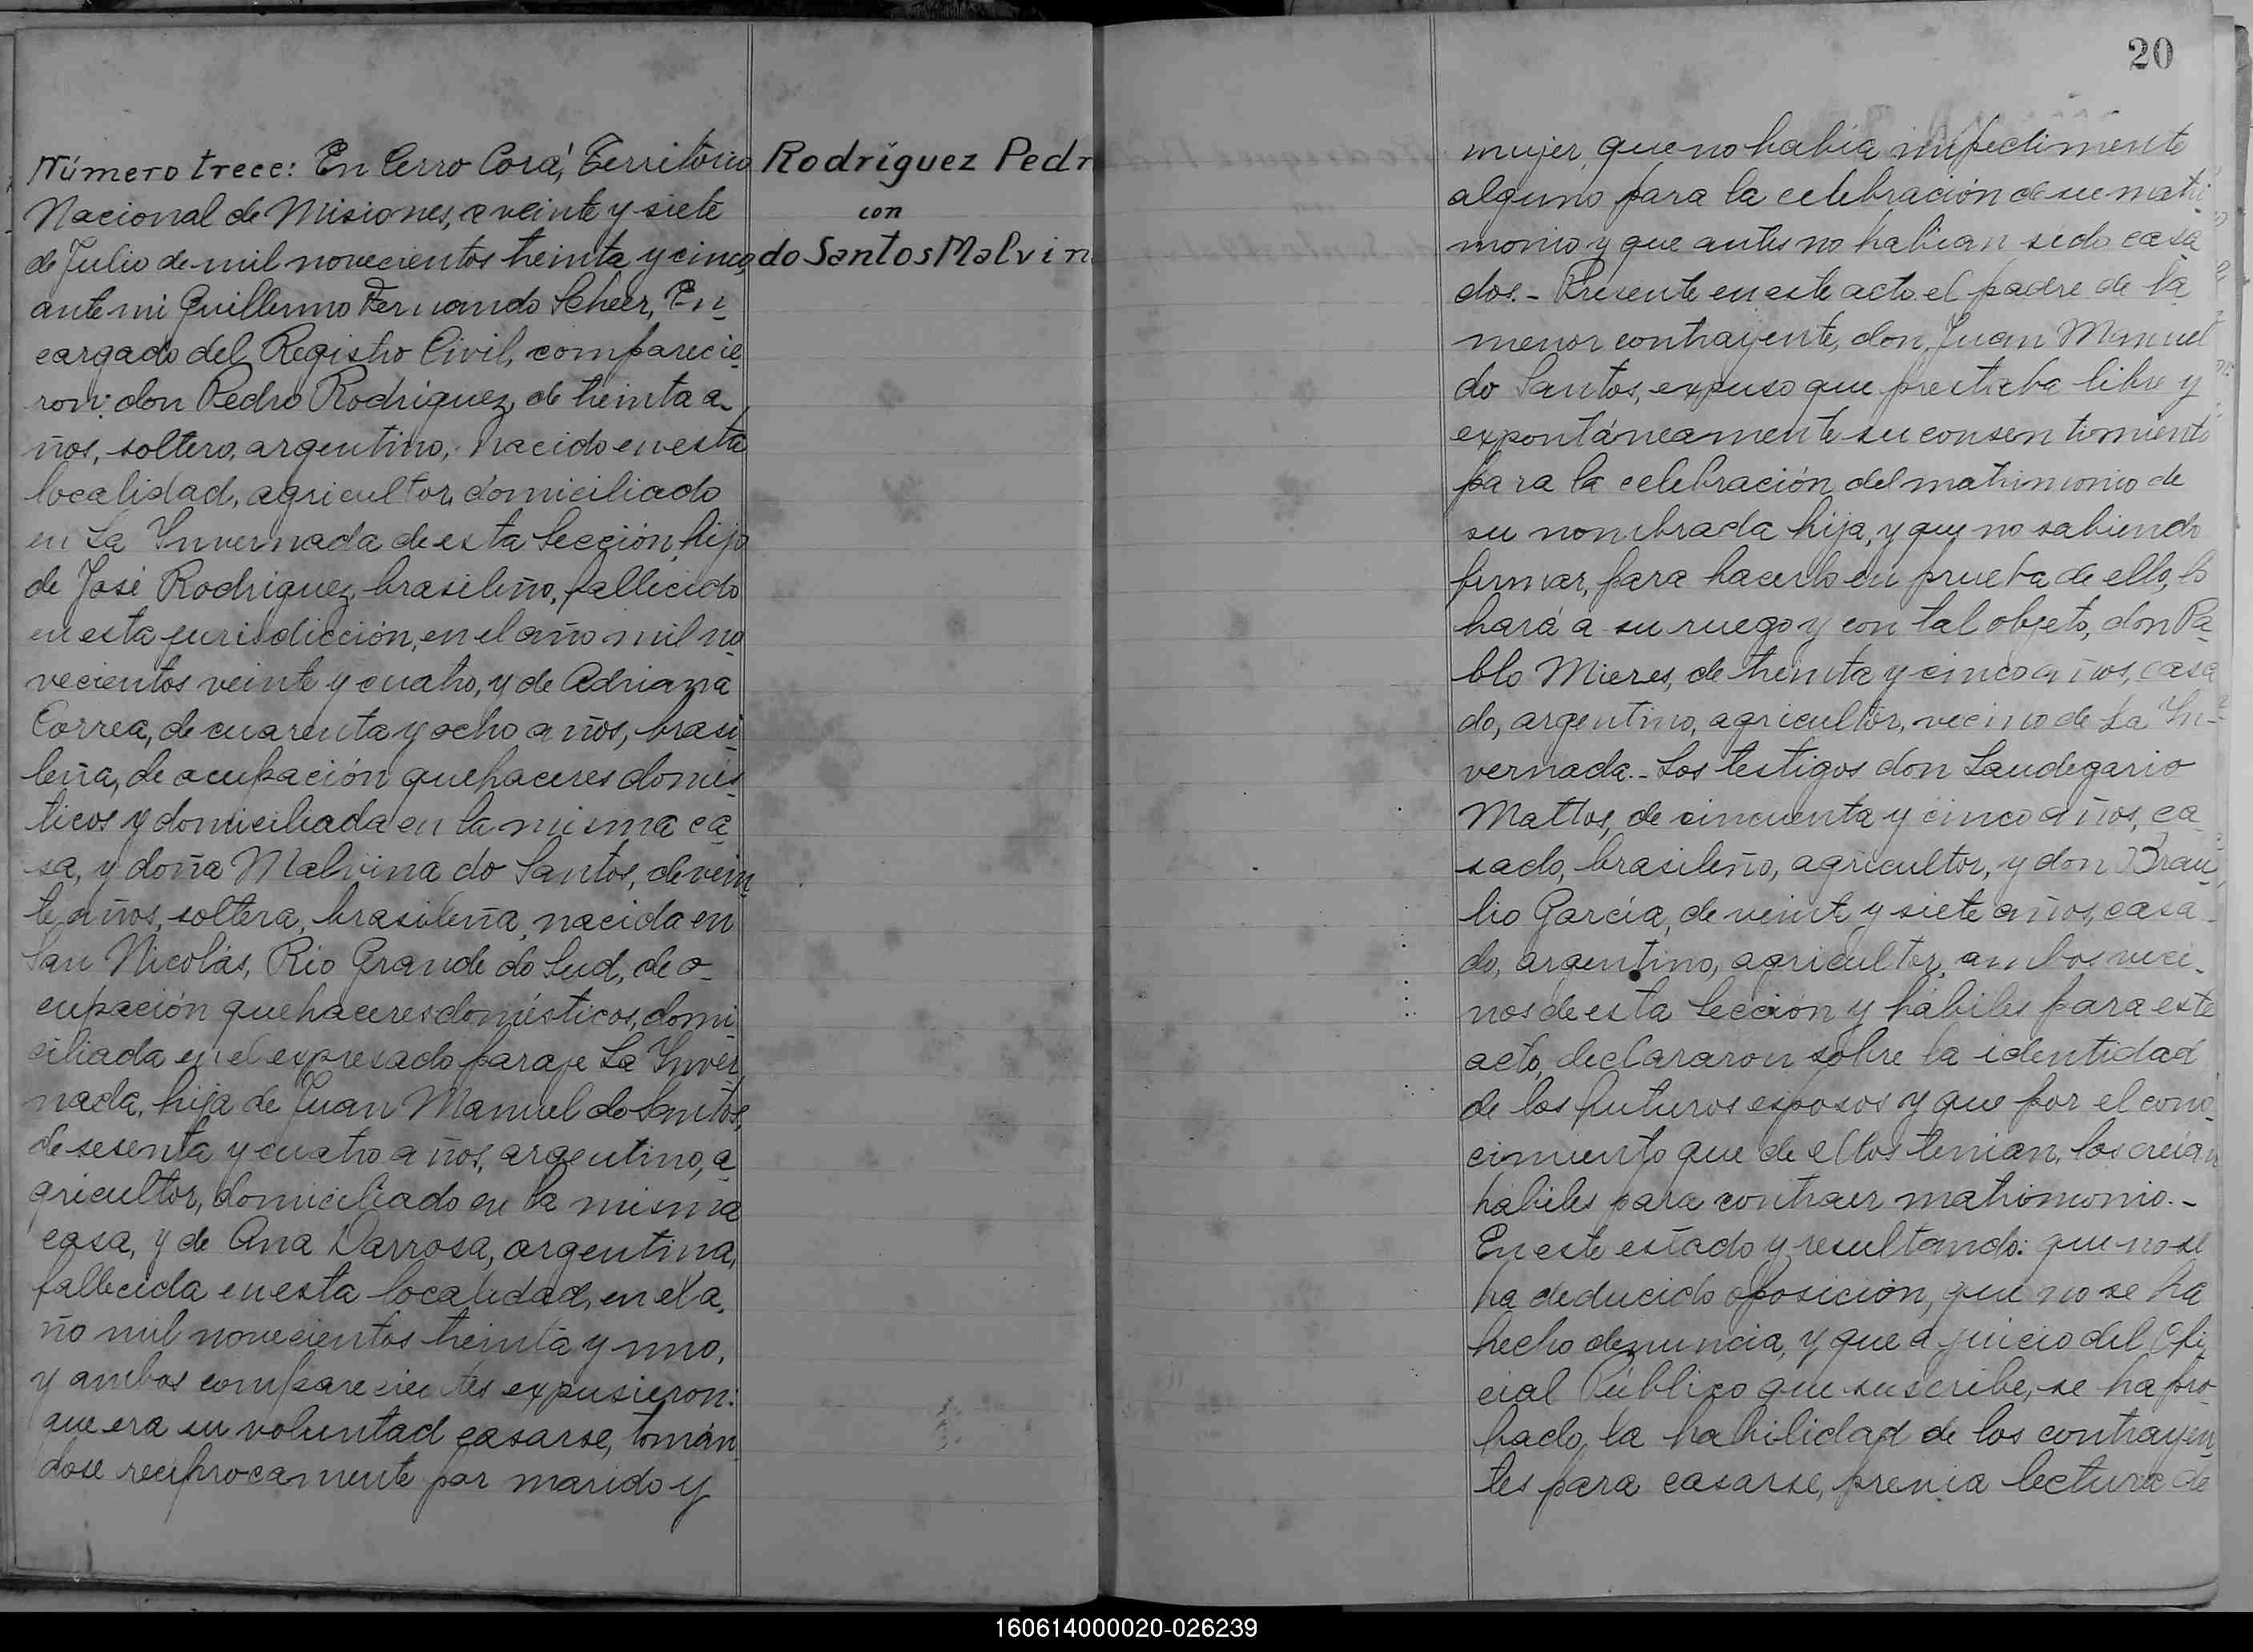 Número trece: En Cerro Corá, Territorio
Nacional de Misiones, a veinte y siete
de Julio de mil novecientos treinta y cinco,
ante mi Guillermo Fernando Scheer, En-
cargado del Registro Civil, comparecie-
ron: don Pedro Rodríguez, de treinta a-
ños, soltero, argentino, nacido en esta
localidad, agricultor, domiciliado
en La Invernada de esta Sección, hijo
de José Rodriguez, brasileño, fallecido
en esta jurisdicción, en el año mil no-
vecientos veinte y cuatro, y de Adriana
Correa, de cuarenta y ocho años, brasi-
leña, de ocupación quehaceres domés-
ticos y domiciliada en la misma ca-
sa, y doña Malvina do Santos, de vein-
te años, soltera, brasileña, nacida en
San Nicolás, Rio Grande do Sud, de o-
cupación quehaceres domésticos, domi-
ciliada en el expresado paraje La Inver-
nada, hija de Juan Manuel do Santos,
de sesenta y cuatro años, argentino, a-
gricultor, domiciliado en la misma
casa, y de Ana Darrosa, argentina,
fallecida en esta localidad, en el a-
ño mil novecientos treinta y uno,
y ambos comparecientes expusieron:
que era su voluntad casarse, tomán-
dose recíprocamente por marido y
Rodríguez Pedr
con
do Santos Malvin
20
mujer, que no había impedimento
alguno para la celebración de su matri-
monio y que antes no habían sido casa-
dos.- Presente en este acto el padre de la
menor contrayente, don Juan Manuel
do Santos, expuso que prestaba libre y
expontáneamente su consentimiento
para la celebración del matrimonio de
su nombrada hija, y que no sabiendo
firmar, para hacerlo en prueba de ello, lo
hará a su ruego y con tal objeto, don Pa-
blo Mieres, de treinta y cinco años, casa-
do, argentino, agricultor, vecino de La In-
vernada.- Los testigos don Laudegario
Mattos, de cincuenta y cinco años, ca-
sado, brasileño, agricultor, y don Brau-
lio García, de veinte y siete años, casa-
do, argentino, agricultor, ambos veci-
nos de esta Sección y hábiles para este
acto, declararon sobre la identidad
de los futuros esposos y que por el cono-
cimiento que de ellos tenian, los creían
hábiles para contraer matrimonio.-
En este estado y resultando: que no se
ha deducido oposición, que no se ha
hecho denuncia, y que a juicio del Ofi-
cial Público que suscribe, se ha pro-
bado la habilidad de los contrayen-
tes para casarse, previa lectura de
160614000020-026239